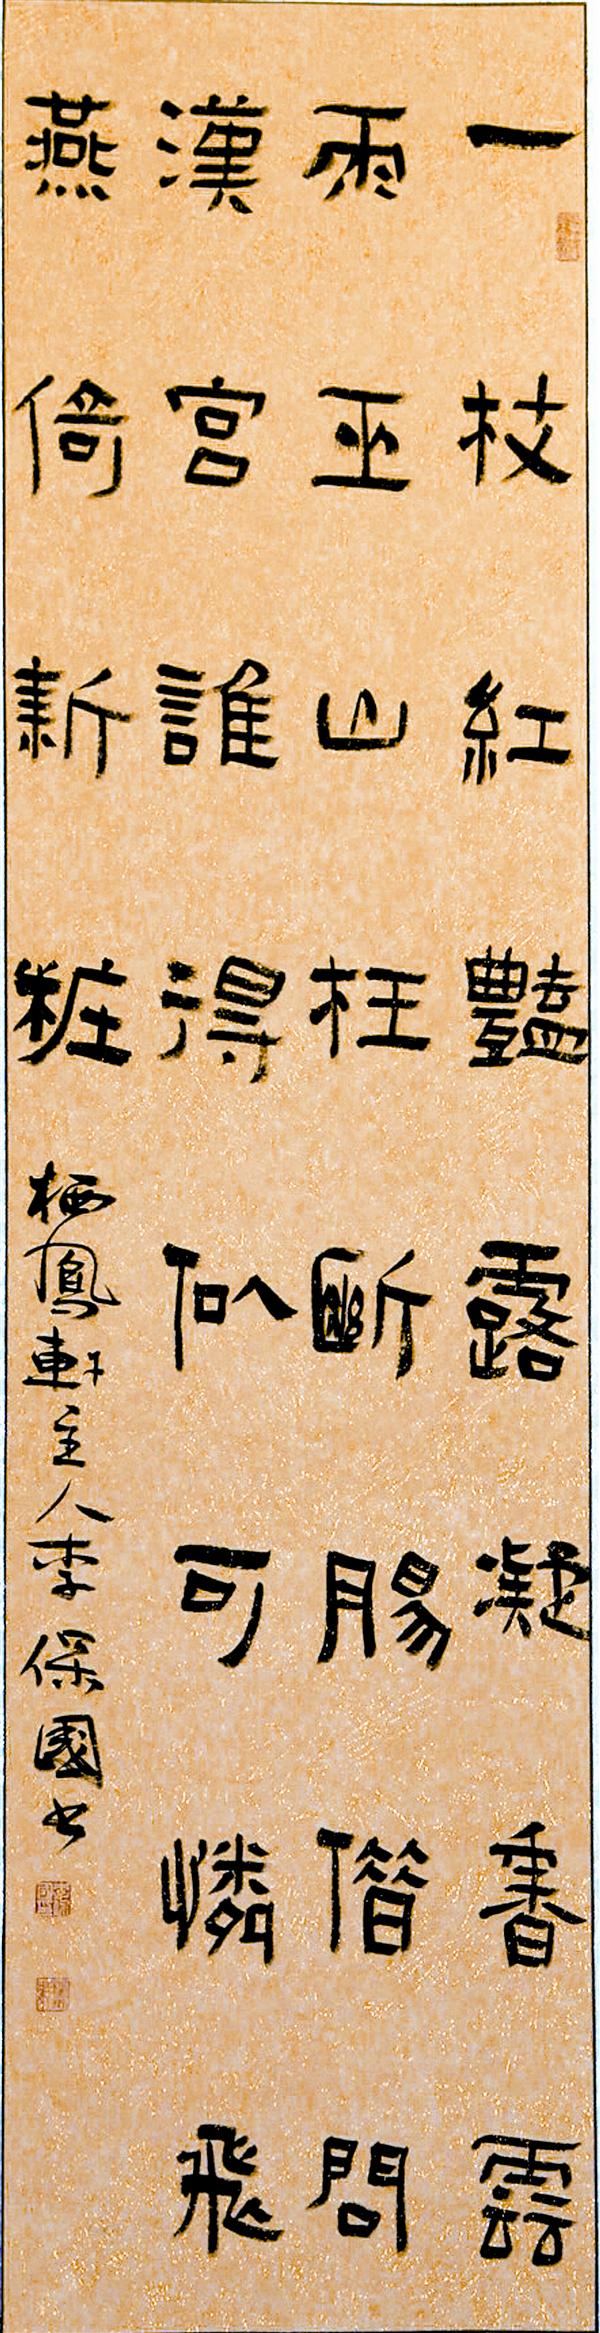 一枝紅豔露凝香雲
雨巫山枉斷腸借問
漢宮誰得似可憐飛
燕倚新粧
栖鳳軒主人李保國书